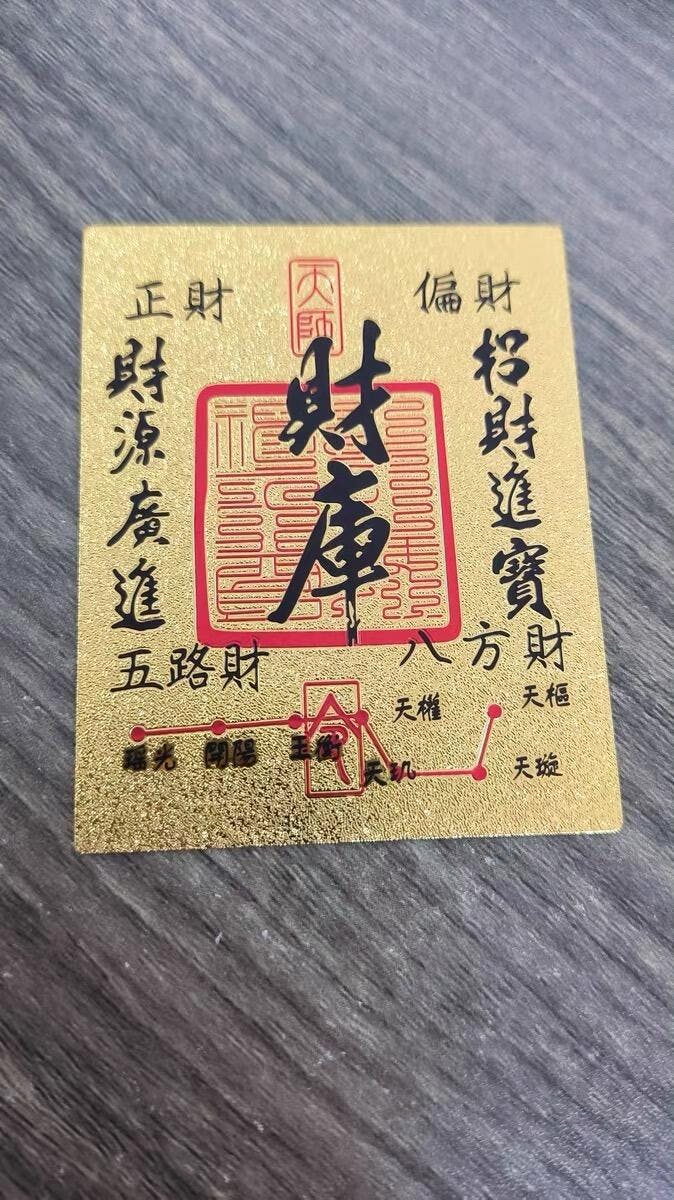 天師
正財
偏財
財庫
財源廣進
招財進寶
五路財
八方財
天樞
天權
瑶光
開陽
玉衡
天璣
天璇